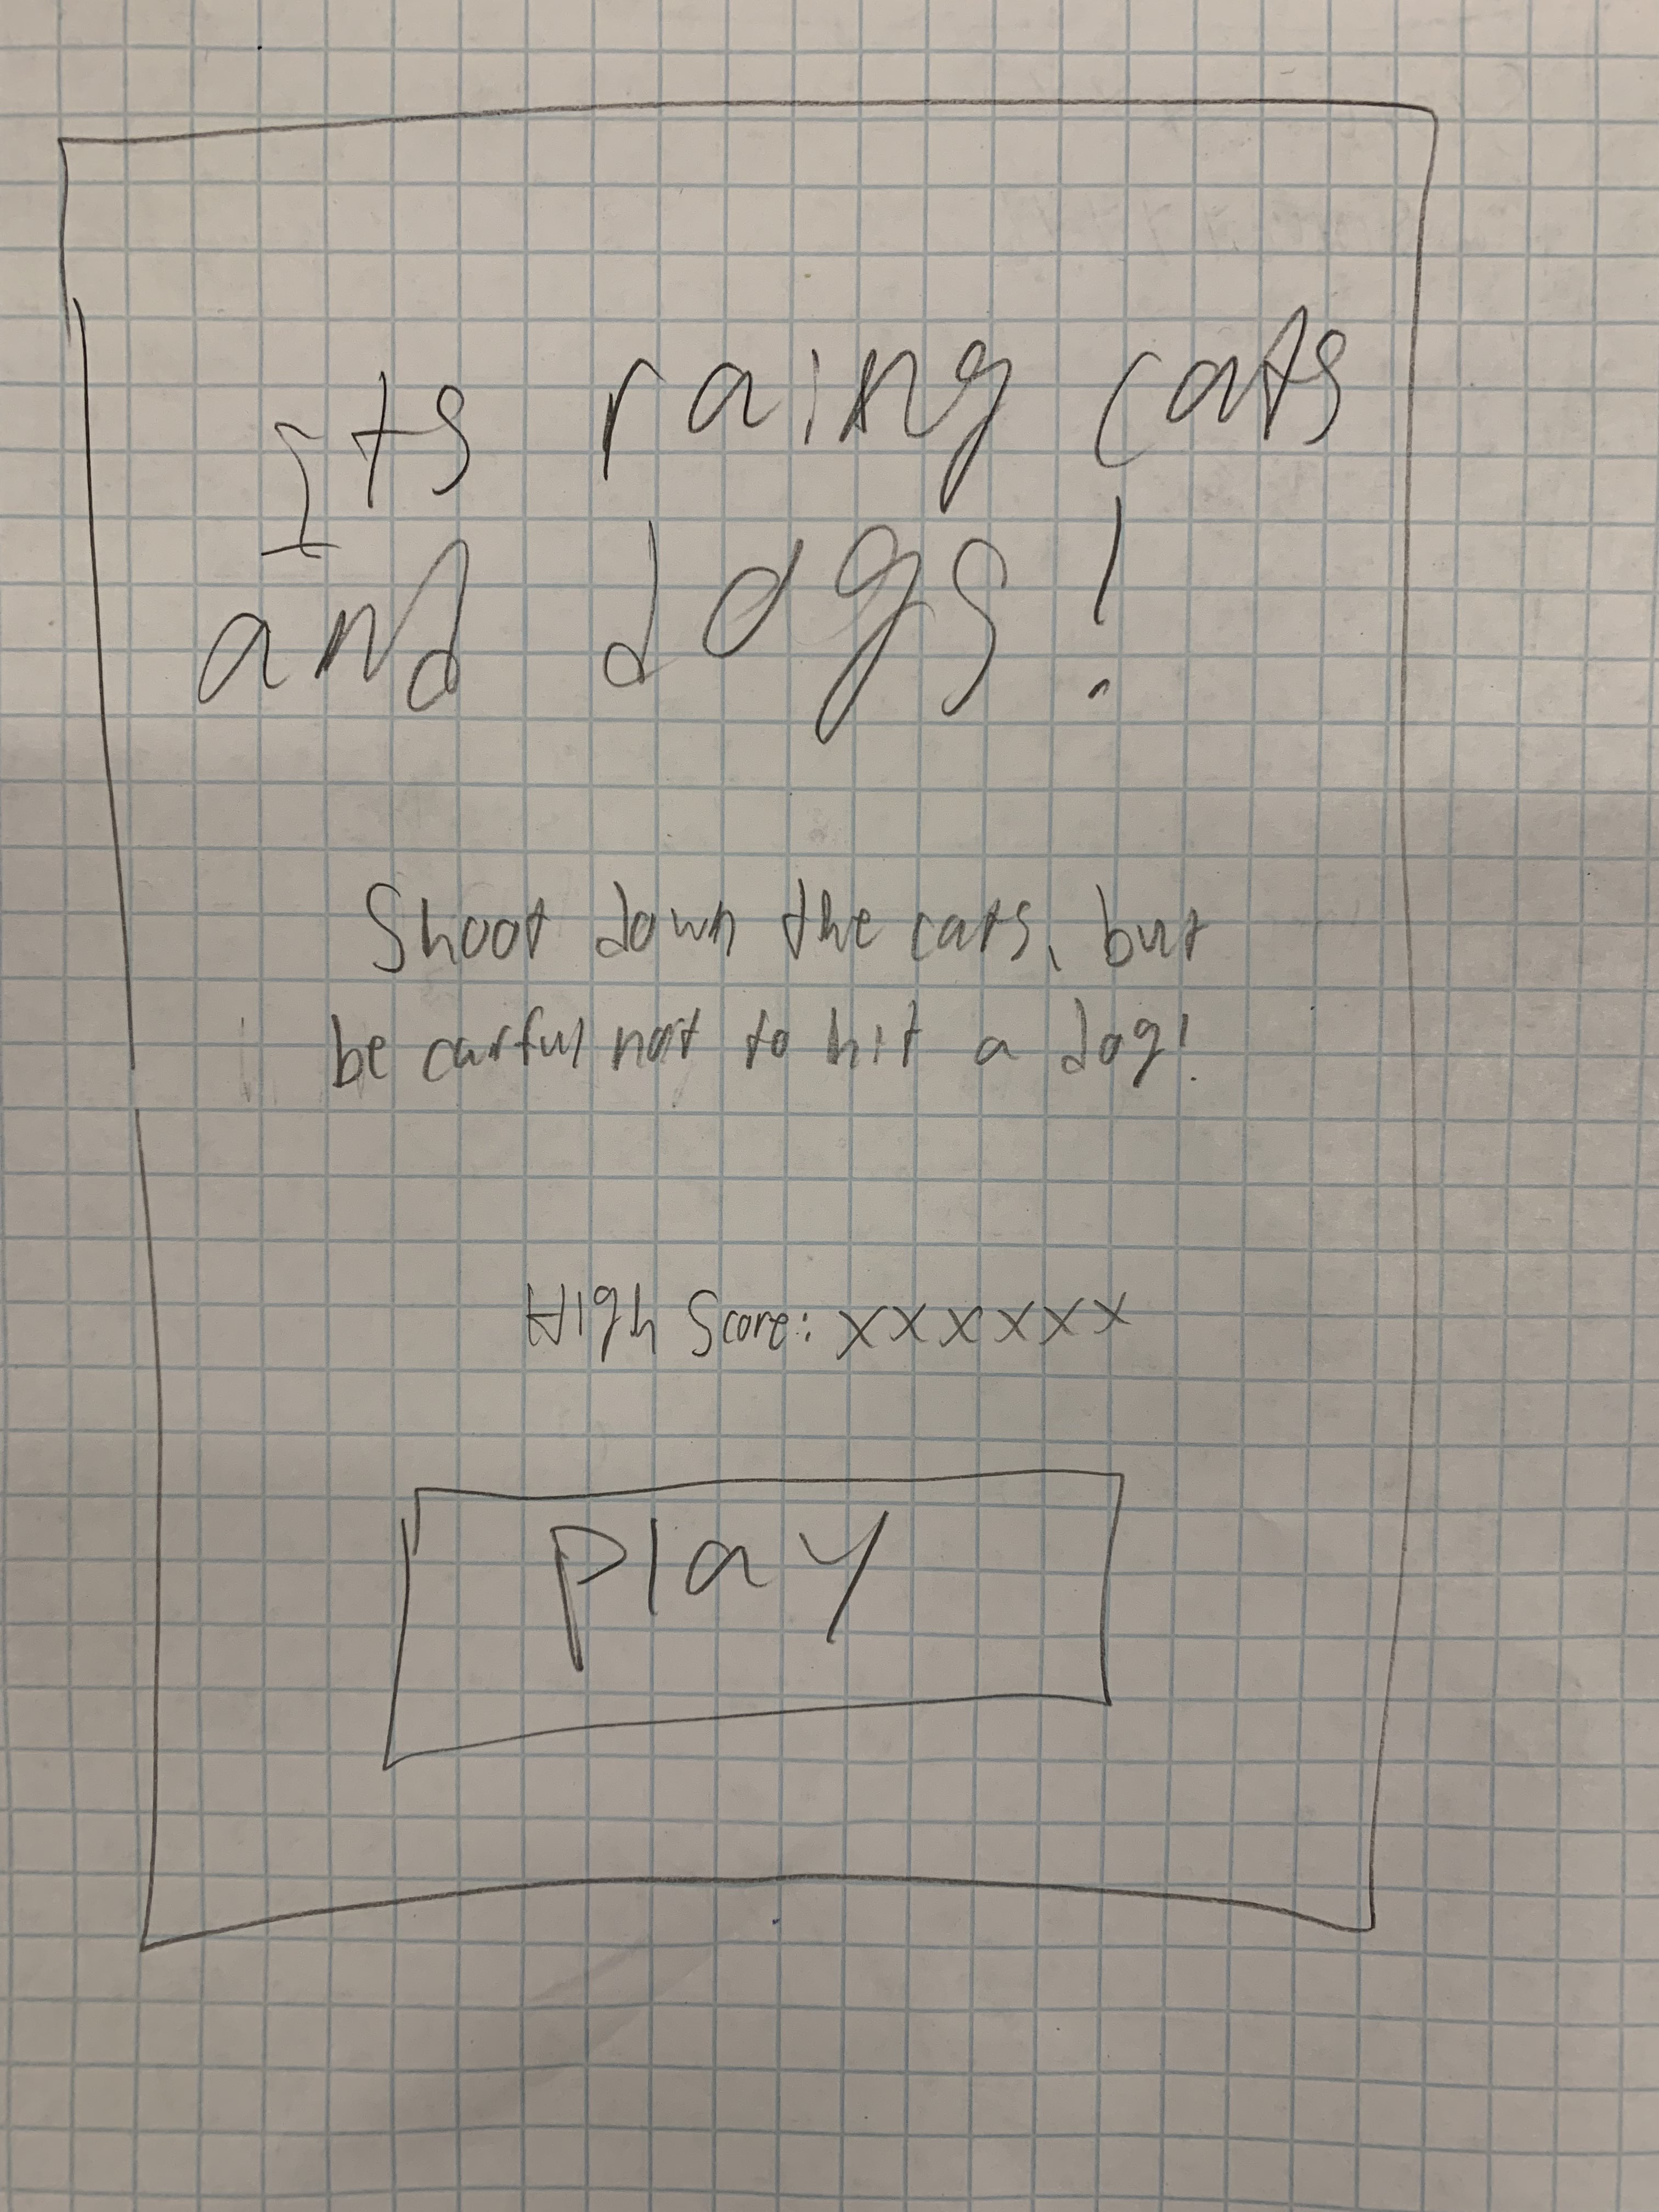 Its raing cats
and dogs!
Shoot down the cats, but
be carful not to hit a dog!
High Score: xxxxxx
Play